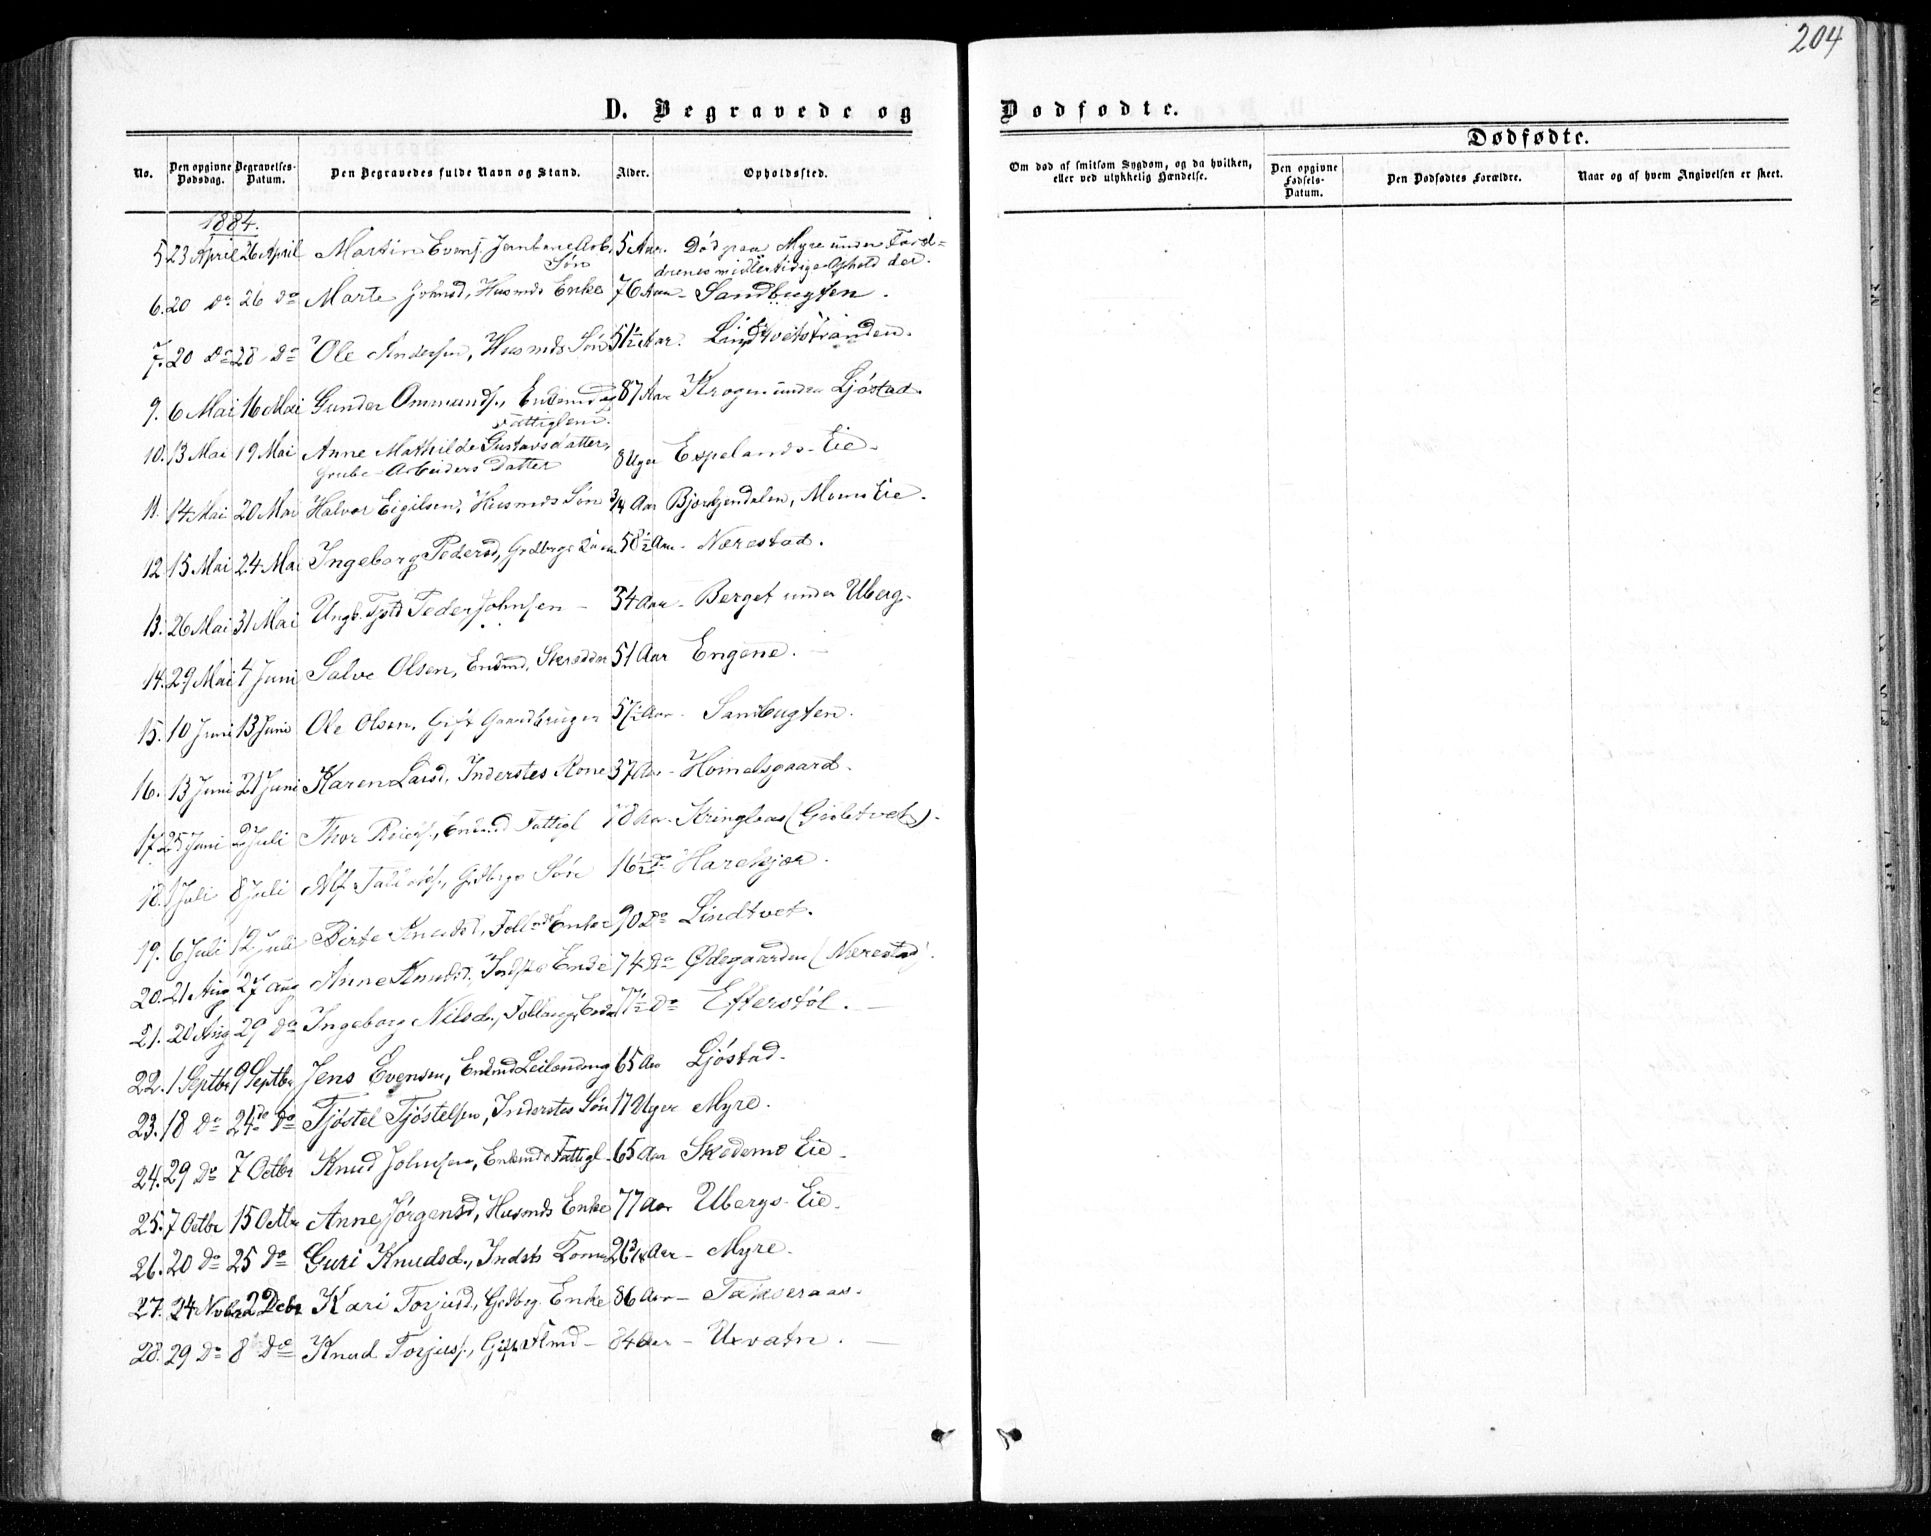 204
D. Begravede og Dødfødte.
No. Den opgivne Dødsdag. Begravelses-Datum. Den Begravedes fulde Navn og Stand. Alder. Opholdssted.
Om død af smitsom Sygdom, og da hvilken, eller ved ulykkelig Hændelse.
Dødfødte.
Den opgivne Fødsels-Datum. Den Dødfødtes Forældre. Naar og af hvem Angivelsen er skeet.
1884.
5. 23 April 26 April Martin Evens. Jernbane Arb. 5 Aar. Død paa Myre under Foræl-
Søn drenes midlertidige Ophold der.
6. 20 do 26 do Marte Johnsd, Husmds Enke 76 Aar - Sandbugten.
7. 20 do 28 do Ole Andersen, Husmds Søn 51½ Aar. Lindtveitstranden.
9. 6 Mai 16 Mai Gunder Ommunds., Enkemd og 87 Aar Krogen under Ljøstad.
Fattiglem.
10. 13 Mai 19 Mai Anne Mathilde Gustavsdatter, 8 Uger Espelands-Eie.
Grube-Arbeiders Datter
11. 14 Mai 20 Mai Halvor Eigilsen, Husmds Søn ¾ Aar Bjørkjendalen, Moms Eie.
12. 15 Mai 24 Mai Ingeborg Pedersd, Grdbrgs 58½ Aar - Nærestad.
13. 26 Mai 31 Mai Ungk. Peder Johnsen - 34 Aar - Berget under Uberg.
14. 29 Mai 4 Juni Salve Olsen, Enkmd, Skrædder 51 Aar Engene.
15. 10 Juni 13 Juni Ole Olsen, Gift Gaardbruger 57½ Aar - Sandbugten.
16. 13 Juni 21 Juni Karen Larsd, Inderstes Kone 37 Aar - Homelsgaard.
17. 25 Juni 2 Juli Thor, Enkmd Fattigl 78 Aar - Kringlaas
18. 1 Juli 8 Juli Alf, Grdbrgs Søn 16½ do Harekjær.
19. 6 Juli 12 Juli Birte Knudsd, Enke 90 do Lindtvet.
20. 21 Aug 27 Aug Anne Knudsd, Enke 74 do Ødegaarden (Nærestad).
21. 20 Aug 29 do Ingeborg Nilsd., Enke 77½ do Efterstøl.
22. 1 Septbr 9 Septbr Jens Evensen, Enkmd Leilænding 65 Aar Ljøstad.
23. 18 do 24 do Tjøstel Tjøstelsen, Inderstes Søn 17 Uger Myre.
24. 29 do 7 Octbr Knud Johnsen, Enkmd Fattigl. 65 Aar Skodemo Eie.
25. 7 Octbr 15 Octbr Anne Jørgensd, Husmds Enke 77 Aar Ubergs-Eie.
26. 20 do 25 do Guri Knudsd., Indsts Kone 26¾ Aar - Myre.
27. 24 Novbr 2 Decbr Kari Torjusd, Grdbrg. Enke 86 Aar - Takseraas.
28. 29 do 8 do Knud Torjus., Gift 84 Aar - Uxvatn.